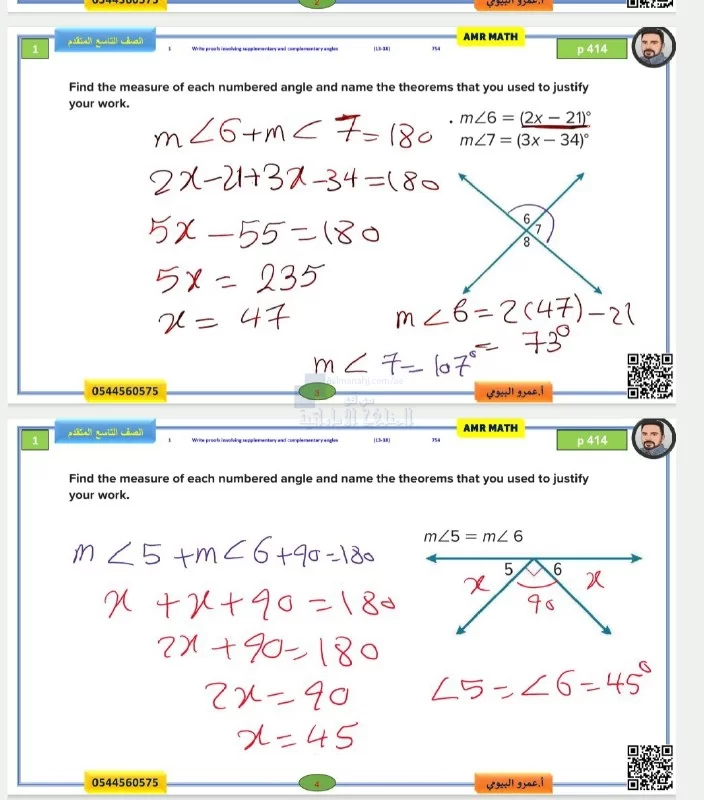 0544560575
2
أ.عمرو البيومي
1
الصف التاسع المتقدم
1 Write proofs involving supplementary and complementary angles (13-18) 754
AMR MATH
p 414
Find the measure of each numbered angle and name the theorems that you used to justify
your work.
m∠6+m<7=180
2x-21+3x-34=180
5x-55=180
5x=235
x=47
. m∠6 = (2x – 21)°
m∠7 = (3x – 34)°
6
7
8
m∠6=2(47)-21
= 73°
m<7=107°
almanahj.com/ae
موقع
المناهج الإماراتية
0544560575
3
أ.عمرو البيومي
1
الصف التاسع المتقدم
1 Write proofs involving supplementary and complementary angles (13-18) 754
AMR MATH
p 414
Find the measure of each numbered angle and name the theorems that you used to justify
your work.
m∠5+m∠6+90=180
x+x+90=180
2x+90=180
2x=90
x=45
m∠5 = m∠ 6
5 6
x 90 x
∠5=∠6=45°
0544560575
4
أ.عمرو البيومي